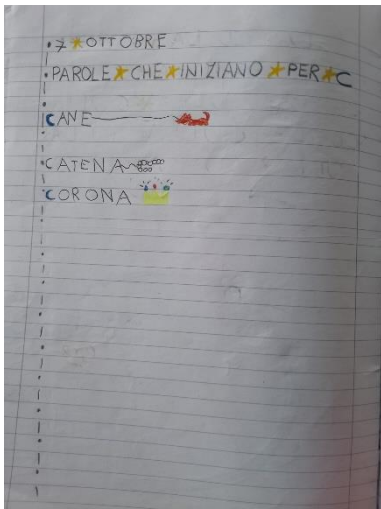 7 OTTOBRE
PAROLE CHE INIZIANO PER C
CANE
CATENA
CORONA